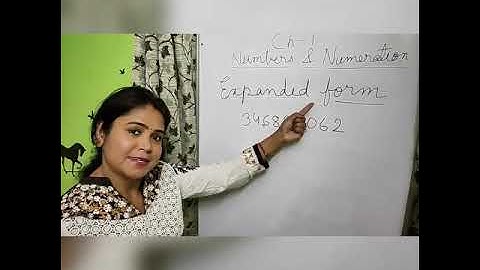 Ch-1
Numbers & Numeration
Expanded form